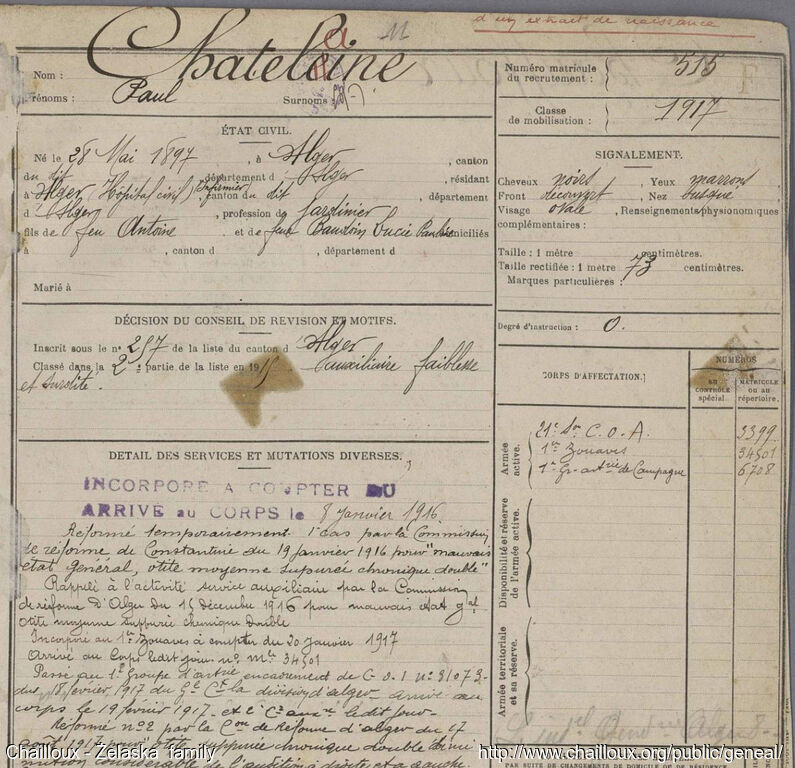 d'un extrait de naissance
Chateleine
Nom :
Prénoms : Paul Surnoms :
ÉTAT CIVIL.
Né le 28 Mai 1897, à Alger, canton
du dit, département d Alger, résidant
à Alger (Hôpital civil) Infirmier canton du dit, département
d Alger, profession de Jardinier
fils de feu Antoine et de feue Baudoin Lucie domiciliés
à , canton d , département d
Marié à
DÉCISION DU CONSEIL DE REVISION ET MOTIFS.
Inscrit sous le n° 257 de la liste du canton d Alger
Classé dans la 2e partie de la liste en 191 auxiliaire faiblesse
et surdité.
DÉTAIL DES SERVICES ET MUTATIONS DIVERSES.
INCORPORÉ A COMPTER DU
ARRIVÉ au CORPS le 8 janvier 1916
Réformé temporairement 1er cas par la Commission
de réforme de Constantine du 19 janvier 1916 pour "mauvais
état général, otite moyenne supurée chronique double"
Rappelé à l'activité service auxiliaire par la Commission
de réforme d'Alger du 15 décembre 1916 pour mauvais état gal
otite moyenne suppurée chronique double
Incorporé au 1er Zouaves à compter du 20 Janvier 1917
Arrivé au Corps ledit jour no Mle 34501
Passé au 1er Groupe d'artrie
du 18 février 1917 du Gl Ct la division d'alger arrivé au
corps le 19 février 1917 et ledit jour
Réformé no 2 par la Con de Réforme d'alger du 17
1917 pour otite suppurée chronique double
de l'audition à droite et à gauche
Numéro matricule
du recrutement : 515
Classe
de mobilisation : 1917
SIGNALEMENT.
Cheveux noirs, Yeux marrons
Front découvert, Nez busqué
Visage ovale, Renseignements physionomiques
complémentaires :
Taille : 1 mètre centimètres.
Taille rectifiée : 1 mètre 73 centimètres.
Marques particulières :
Degré d'instruction : 0.
CORPS D'AFFECTATION.
NUMÉROS
AU CONTRÔLE spécial.
MATRICULE OU AU répertoire.
Armée active.
21e Son C.O.A. 3399
1er Zouaves 34501
1er Gr. artrie de Campagne 6708
Disponibilité et réserve de l'armée active.
Armée territoriale et sa réserve.
PAR SUITE DE CHANGEMENTS DE DOMICILE OU DE RÉSIDENCE.
Chailloux - Zelaska family
http://www.chailloux.org/public/geneal/